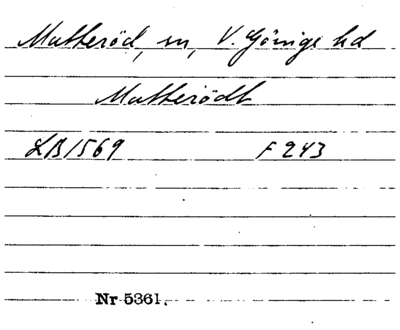 Matteröd, sn, V. Göinge hd
Matterödt
LB 1569 F 243
Nr 5361.